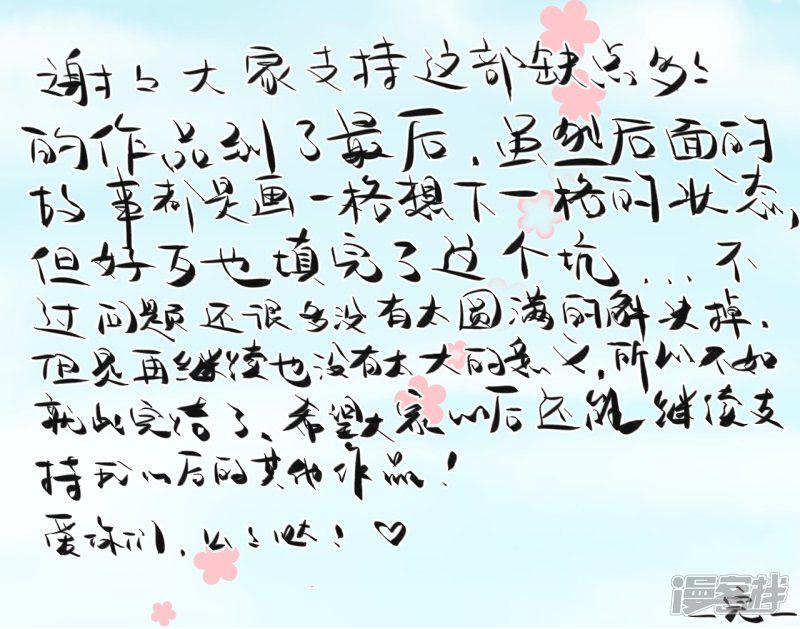 谢々大家支持这部缺点多多
的作品到了最后，虽然后面的
故事都是画一格想下一格的状态，
但好歹也填完了这个坑...不
过问题还很多没有太圆满的解决掉，
但是再继续也没有太大的意义，所以不如
就此完结了、希望大家以后还能继续支
持我以后的其他作品！
爱你们，么么哒！♡
—完—
漫客栈